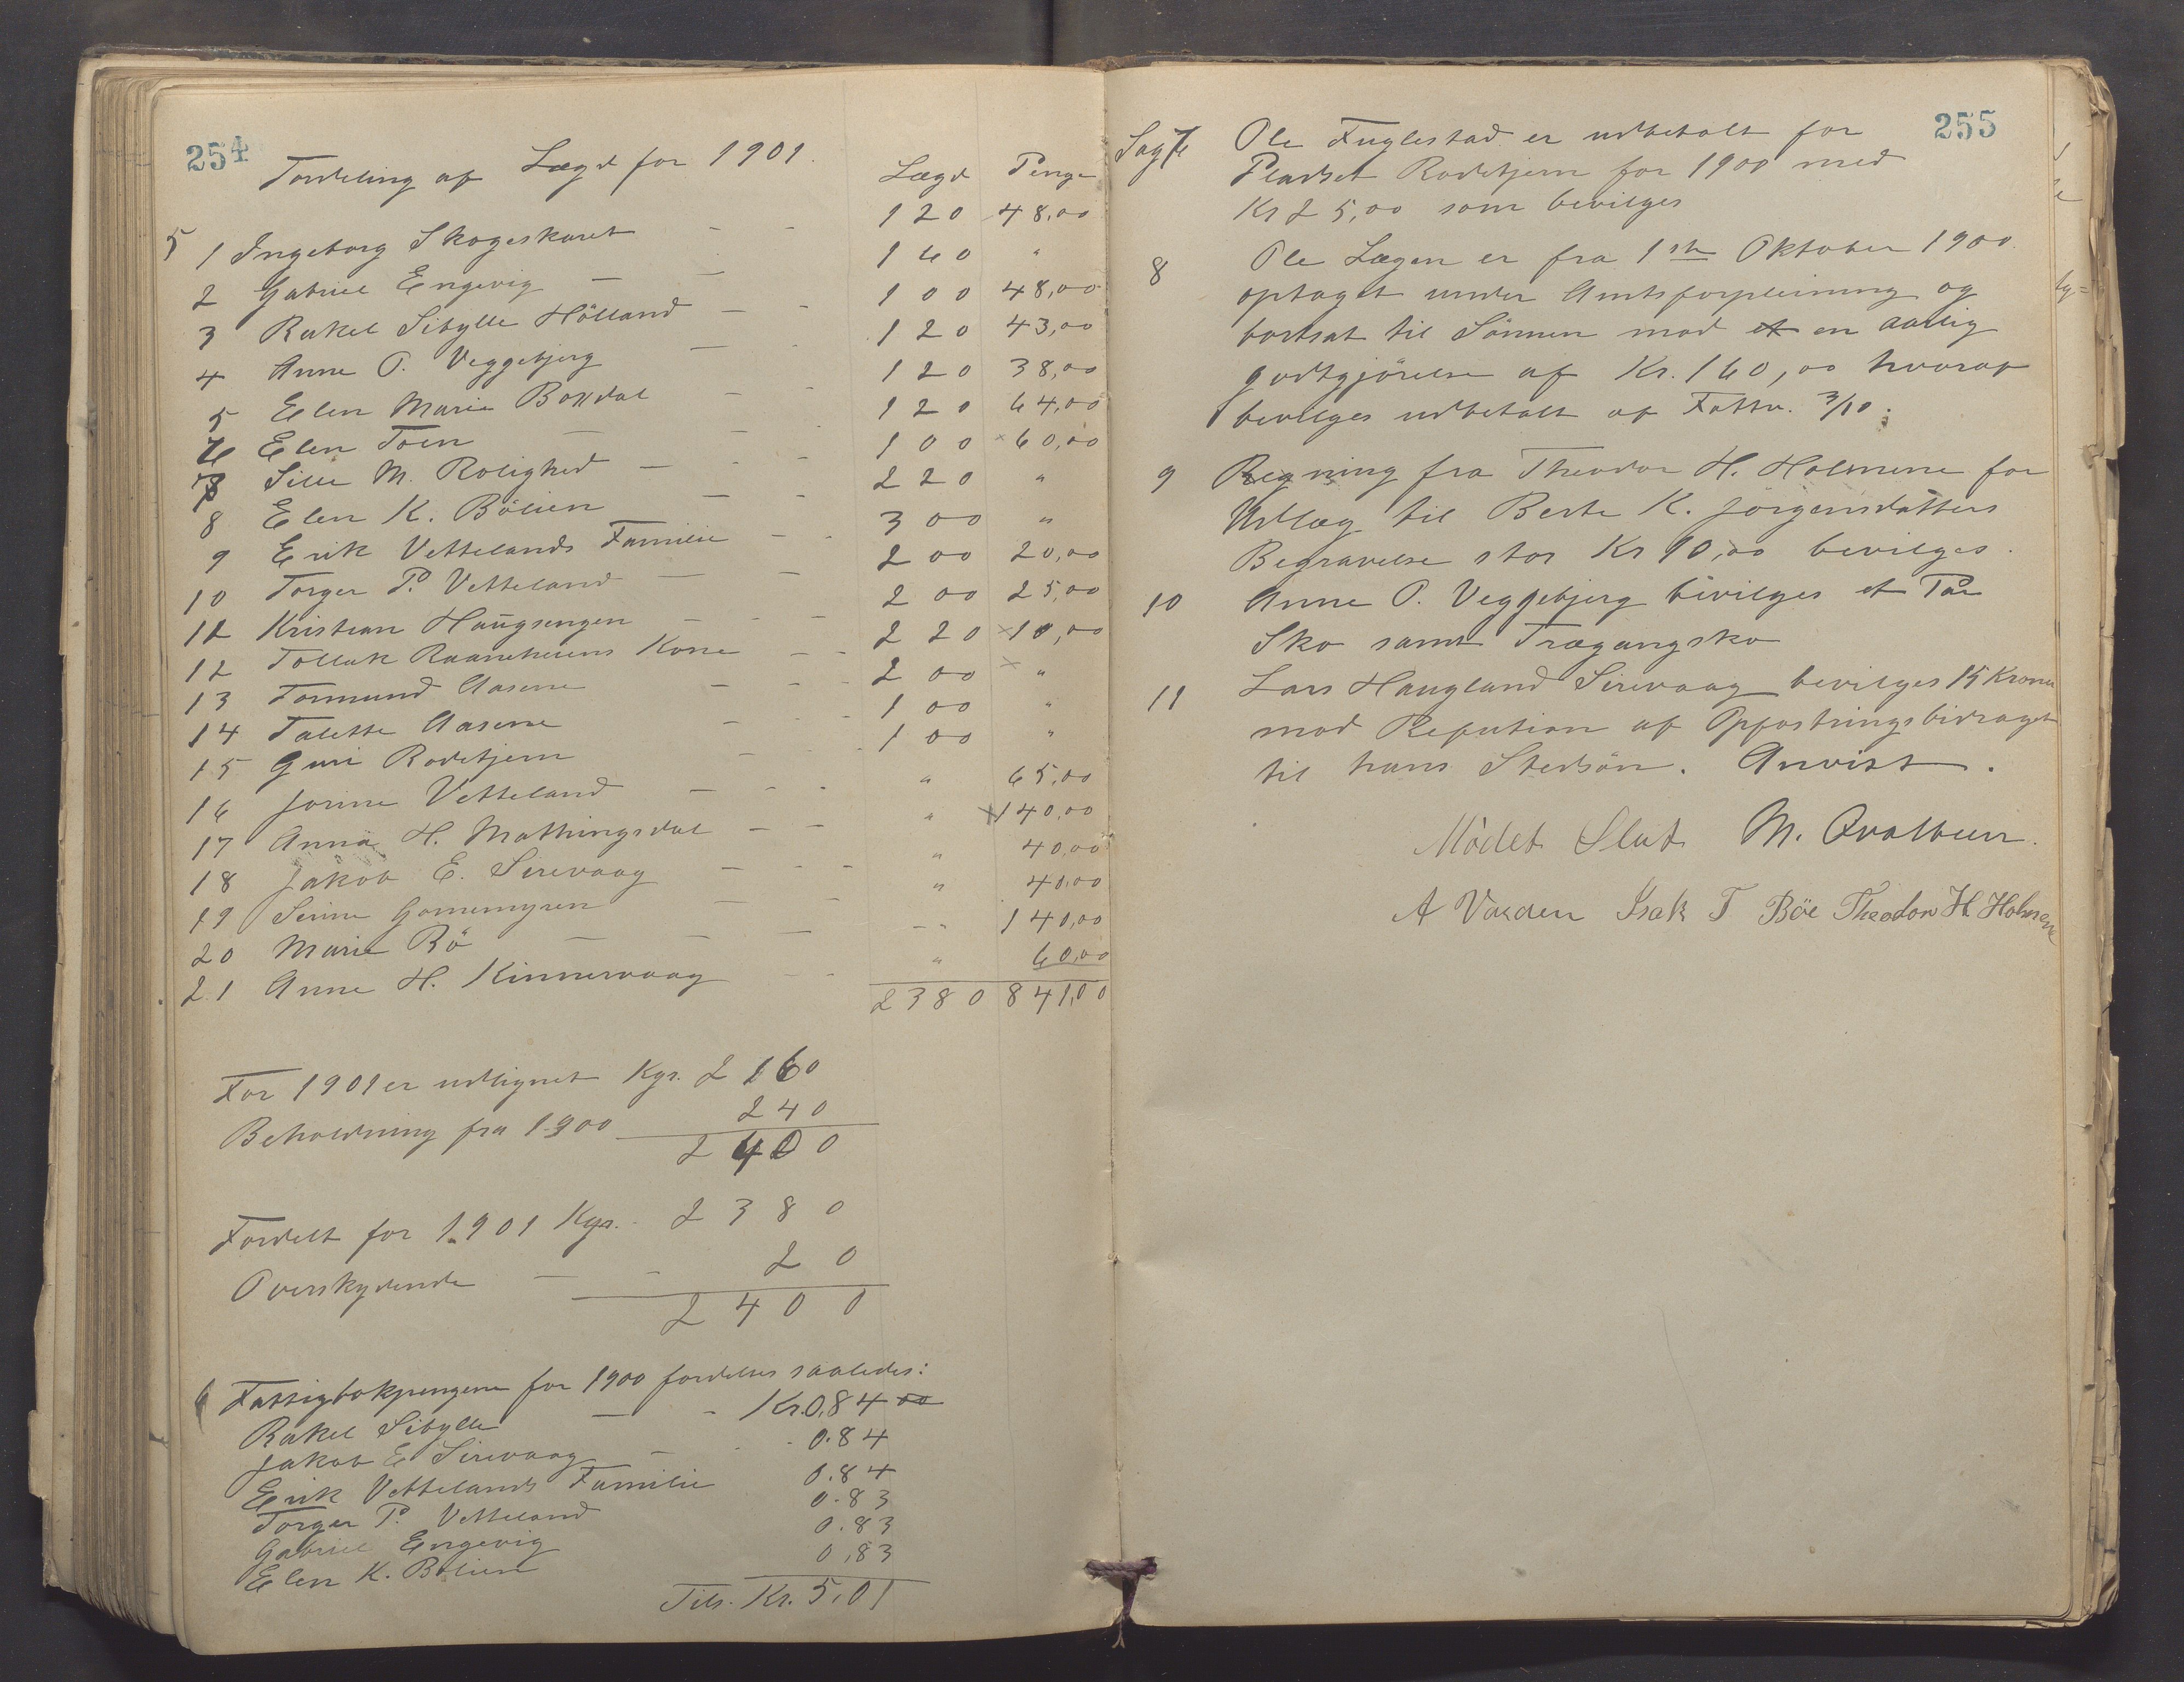 254
Fordeling af Lægd for 1901.
Lægd Penge
5 1 Ingeborg Skogeskaret - - 120 48,00
2 Gabriel Engevig - - 160 "
3 Rakel Sibylle Hölland - - 100 48,00
4 Anne P. Veggebjerg - - 120 43,00
5 Elen Marie Boxdal - - 120 38,00
6 Elen Toen - - 120 64,00
7 Sille M. Rolighed - - 100 × 60,00
8 Elen K. Bölien - - 220 "
9 Erik Vettelands Familie - - 300 "
10 Torger P. Vetteland - - 200 20,00
11 Kristian Haugsengen - - 200 25,00
12 Tollak Raaneheiens Kone - - 220 × 10,00
13 Tormund Aasene - - 200 × "
14 Talette Aasene - - 100 "
15 Guri Rodetjern - - 100 "
16 Jorine Vetteland - - " 65,00
17 Anna H. Mathingsdal - - " × 140,00
18 Jakob E. Sirevaag - - " 40,00
19 Serine Gommemyren - - " 40,00
20 Marie Bö - - - " 140,00
21 Anne H. Kinnervaag - - " 60,00
2380 841,00
For 1901 er udlignet Kgr. 2160
Beholdning fra 1900 240
2400
Fordelt for 1901 Kgr. 2380
Overskydende - - 20
2400
6 Fattigbokpengene for 1900 fordeles saaledes:
Rakel Sibylle - - Kr. 0,84 00
Jakob E Sirevaag - - 0.84
Erik Vettelands Familie 0.84
Torger P. Vetteland 0.83
Gabriel Engevig 0.83
Elen K. Bölien 0,83
Tils. Kr. 5,01
255
Sag 7 Ole Fuglestad er udbetalt for
Pladset Rodetjern for 1900 med
Kr 25,00 som bevilges
8 Ole Lægen er fra 1ste Oktober 1900
optaget under Amtsforpleining og
bortsat til Sönnen mod et en aarlig
godtgjörelse af Kr. 160,00 hvoraf
bevilges udbetalt af Fattv. 3/10.
9 Regning fra Theodor H. Holmene for
Udlæg til Berte K. Jörgensdatters
Begravelse stor Kr 10,00 bevilges.
10 Anne P. Veggebjerg bevilges et Par
Sko samt Trægangsko
11 Lars Haugland Sirevaag bevilges 15 Kroner
mod Refution af Opfostringsbidraget
til hans Stedsön. Anvist.
Mödet Slut M. Qvalbein.
A Varden Isak T Böe Theodor H. Holmene